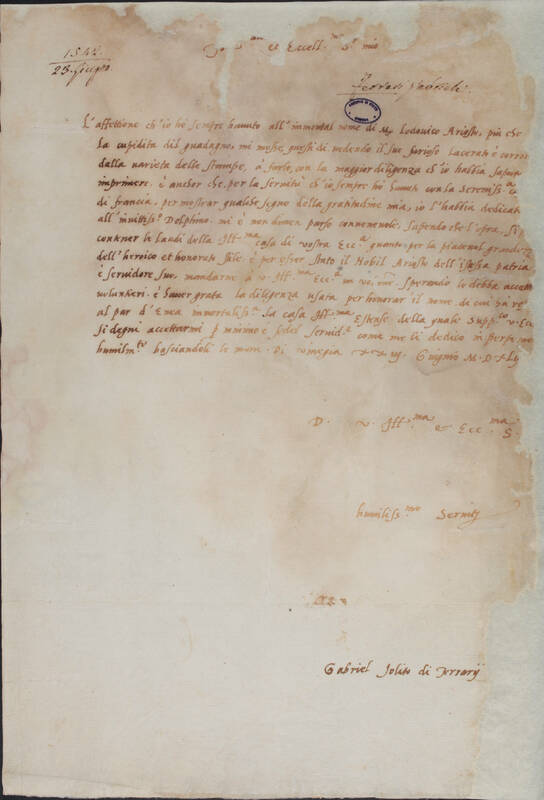 1542
23. Giugno
et Eccell. Sr mio
Ferrari Gabriele
L'affettione ch'io hò sempre hauuto all'immortal nome di M. Lodouico Ariosto, più che
la cupidita del guadagno, mi mosse, questi dì uedendo il suo furioso lacerato è corroso
dalla uarieta delle stampe, à farlo, con la maggior diligenza ch'io habbia saputo
imprimere. è anchor che, per la seruitù ch'io sempre hò hauuta con la Sereniss.a
di francia, per mostrar qualche segno della gratitudine mia, io l'habbia dedicato
all'inuittiss.o Delphino. mi è non dimen parso conueneuole, sapendo che l'opra,
contener le laudi della Ill.ma casa di vostra Ecc.a quanto per la
dell'heroico et honorato stile. è per esser stato il Nobil Ariosto dell'istessa patria
è seruidore suo, mandarne à v. Ill.ma Ecc.a un vo. sperando le debba
uolentieri. è hauer grata la diligenza usata per honorar il nome di cui
al par d'Enea immortaliss. la casa Ill.ma Estense della quale Supp.co v. Ecc.
si degni accettarmi p minimo è fedel seruid.e come me li dedico
humilm.te basciandoli le mani. Di Giugnio M.D.
D. v. Ill.ma et Ecc.ma S.
humiliss.mo
Gabriel Jolito di Ferrarij